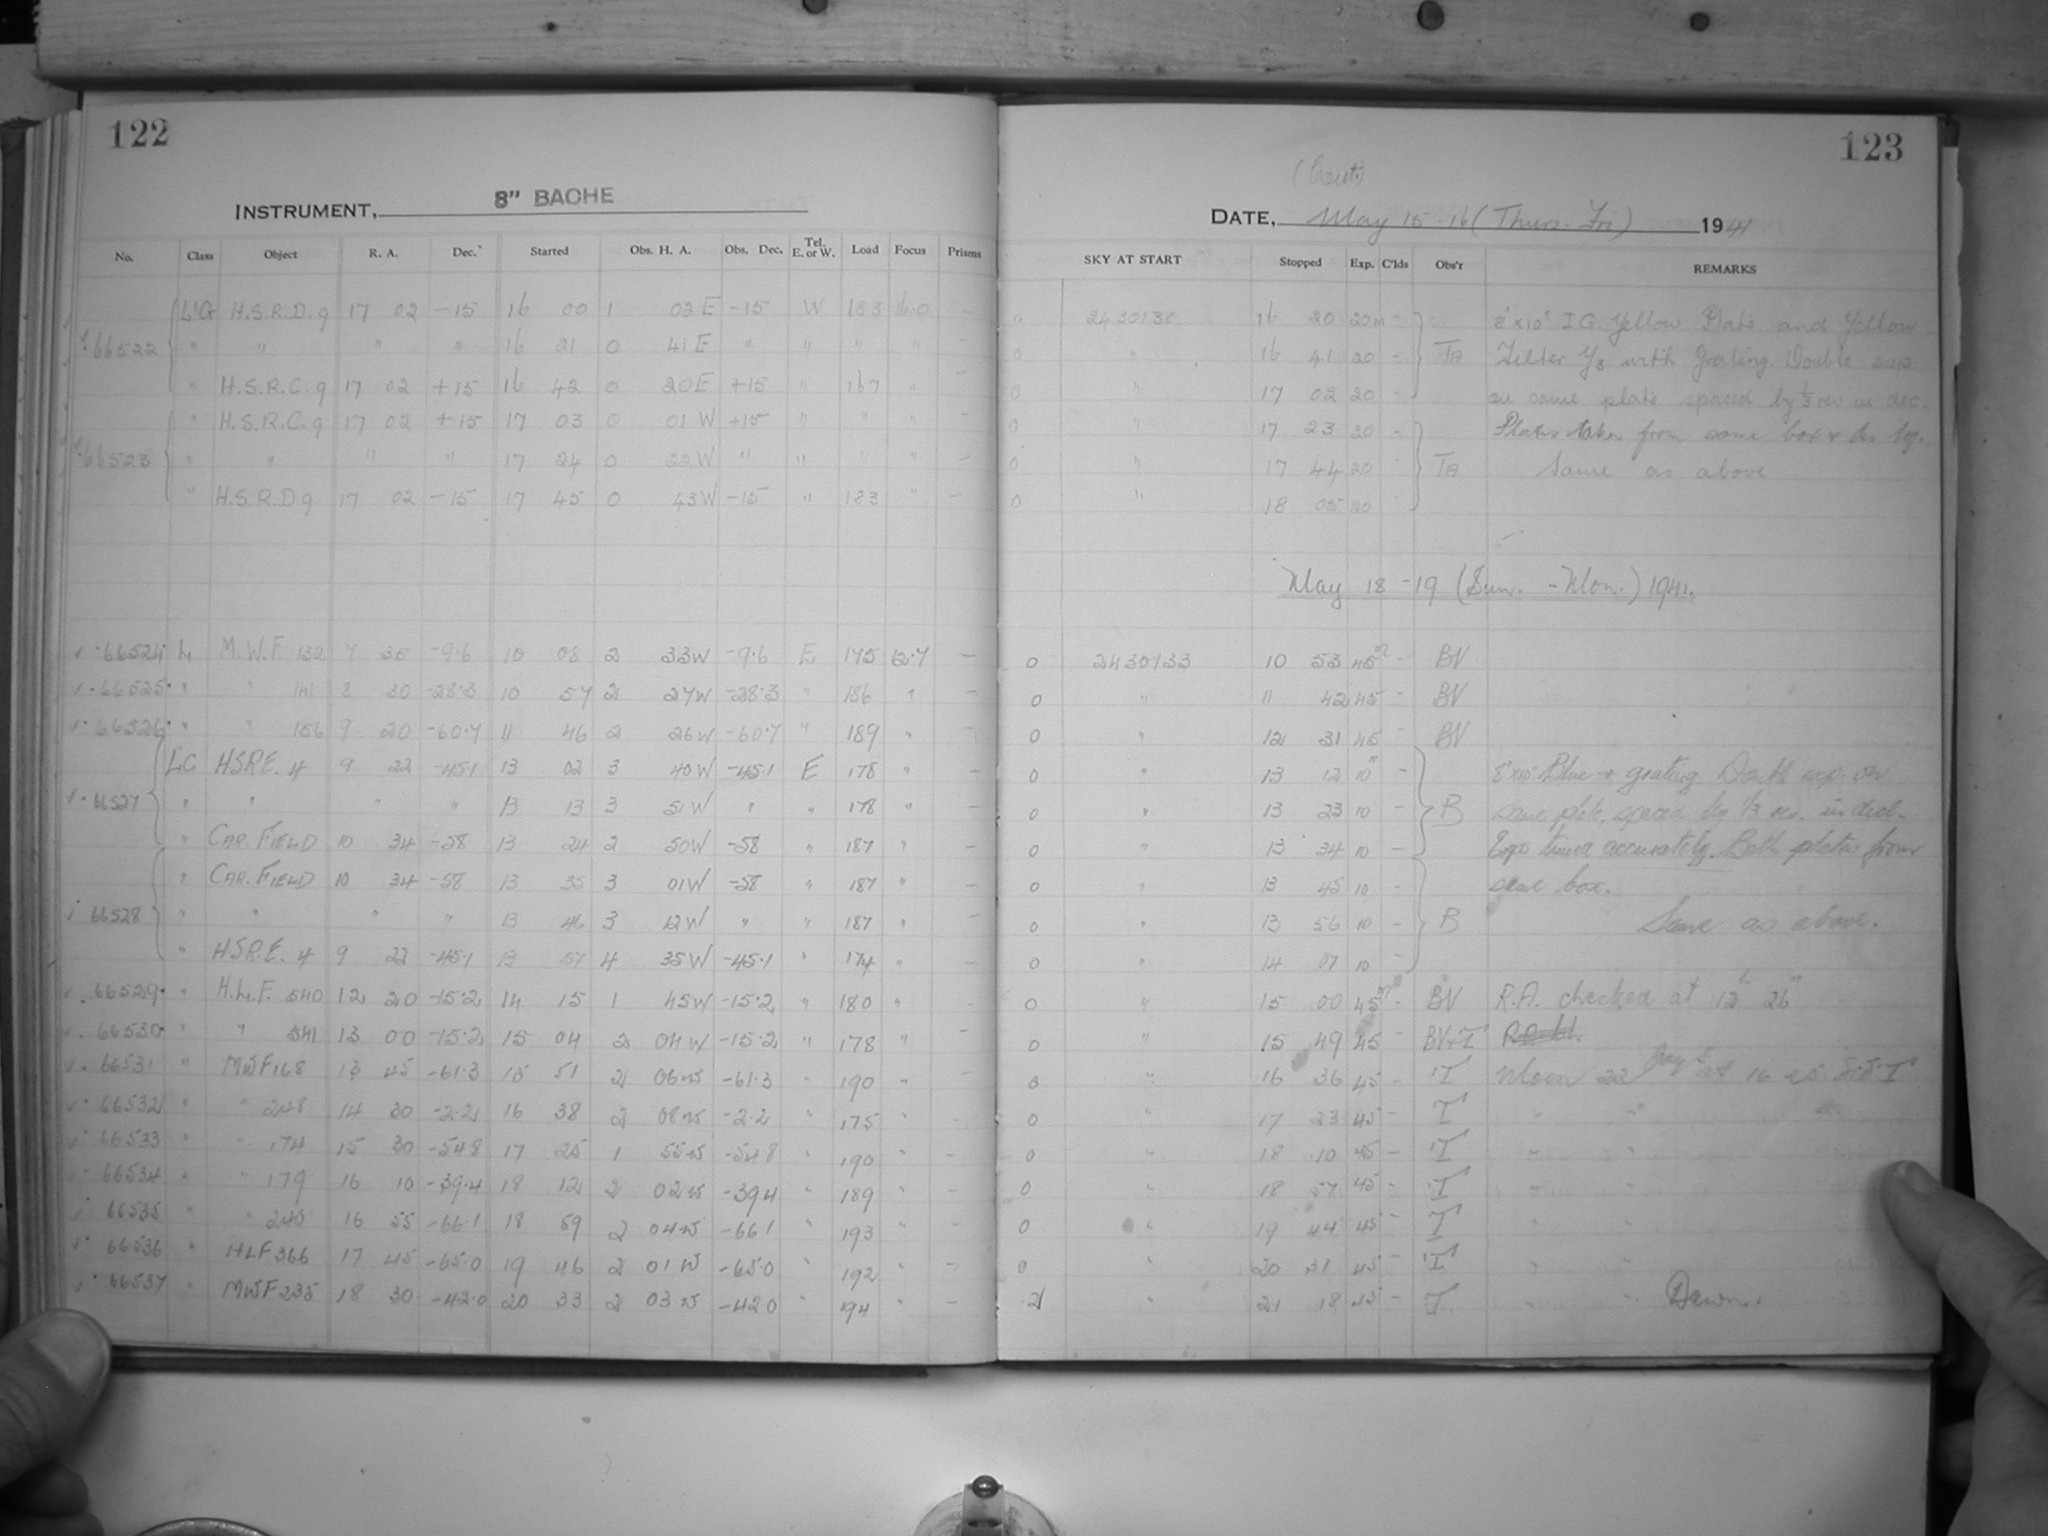 122
INSTRUMENT, 8" BACHE
No. Class Object R. A. Dec. Started Obs. H. A. Obs. Dec. Tel. E. or W. Load Focus Prisms
L'G H.S.R.D. 9 17 02 -15 16 00 1 02 E -15 W 183 -
66522 " " " " 16 21 0 41 E " " " "
" H.S.R.C. 9 17 02 +15 16 42 0 20 E +15 " 167 " -
" H.S.R.C. 9 17 02 +15 17 03 0 01 W +15 " " "
66523 " " " " 17 24 0 22 W " " " " -
" H.S.R.D 9 17 02 -15 17 45 0 43 W -15 " 183 " -
66524 L M.W.F. 132 7 35 -9.6 10 08 2 33 W -9.6 E 175 12.7 -
66525 " " 141 8 30 -28.3 10 57 2 27 W -28.3 " 186 " -
66526 " " 156 9 20 -60.7 11 46 2 26 W -60.7 " 189 " -
LG HSRE. 4 9 22 -45.1 13 02 3 40 W -45.1 E 178 " -
66527 " " " " 13 13 3 51 W " " 178 " -
" CAR. FIELD 10 34 -58 13 24 2 50 W -58 " 187 " -
" CAR. FIELD 10 34 -58 13 35 3 01 W -58 " 187 " -
66528 " " " " 13 46 3 12 W " " 187 " -
" HSRE. 4 9 22 -45.1 13 57 4 35 W -45.1 " 174 " -
66529 " H.L.F. 540 12 20 -15.2 14 15 1 45 W -15.2 " 180 " -
66530 " " 541 13 00 -15.2 15 04 2 04 W -15.2 " 178 " -
66531 " MWF 168 13 45 -61.3 15 51 2 06 W -61.3 " 190 " -
66532 " " 248 14 30 -2.2 16 38 2 08 W -2.2 " 175 " -
66533 " " 174 15 30 -54.8 17 25 1 55 W -54.8 " 190 " -
66534 " " 179 16 10 -39.4 18 12 2 02 W -39.4 " 189 " -
66535 " " 245 16 55 -66.1 18 59 2 04 W -66.1 " 193 " -
66536 " HLF 366 17 45 -65.0 19 46 2 01 W -65.0 " 192 " -
66537 " MWF 235 18 30 -42.0 20 33 2 03 W -42.0 " 194 " -
123
(Cont.)
DATE, May 15-16 (Thurs-Fri) 1941
SKY AT START Stopped Exp. C'lds Obs'r REMARKS
0 2430130 16 20 20m - 8"x10" I G. Yellow Plate and Yellow
0 " 16 41 20 - TA Filter Y3 with Grating. Double exp
0 " 17 02 20 on same plate spaced by 1/3 rev in dec.
0 " 17 23 20 - Plates taken from same box
0 " 17 44 20 TA Same as above
0 " 18 05 20
May 18-19 (Sun. - Mon.) 1941.
0 2430133 10 53 45m - BV
0 " 11 42 45 - BV
0 " 12 31 45 BV
0 " 13 12 10m - 8"x10" Blue + grating. Double exp. on
0 " 13 23 10 - B same plate, spaced by 1/3 rev. in decl.
0 " 13 34 10 - Exps timed accurately. Both plates from
0 " 13 45 10 - same box.
0 " 13 56 10 - B Same as above.
0 " 14 07 10 -
0 " 15 00 45m - BV R.A. checked at 12h 26m
0 " 15 49 45 BV+T
0 " 16 36 45 - T Moon 22
0 " 17 23 45 - T " "
0 " 18 10 45 - T " "
0 " 18 57 45 - T " "
0 " 19 44 45 - T " "
0 " 20 31 45 - T " "
2 " 21 18 45 - T. " " Dawn.